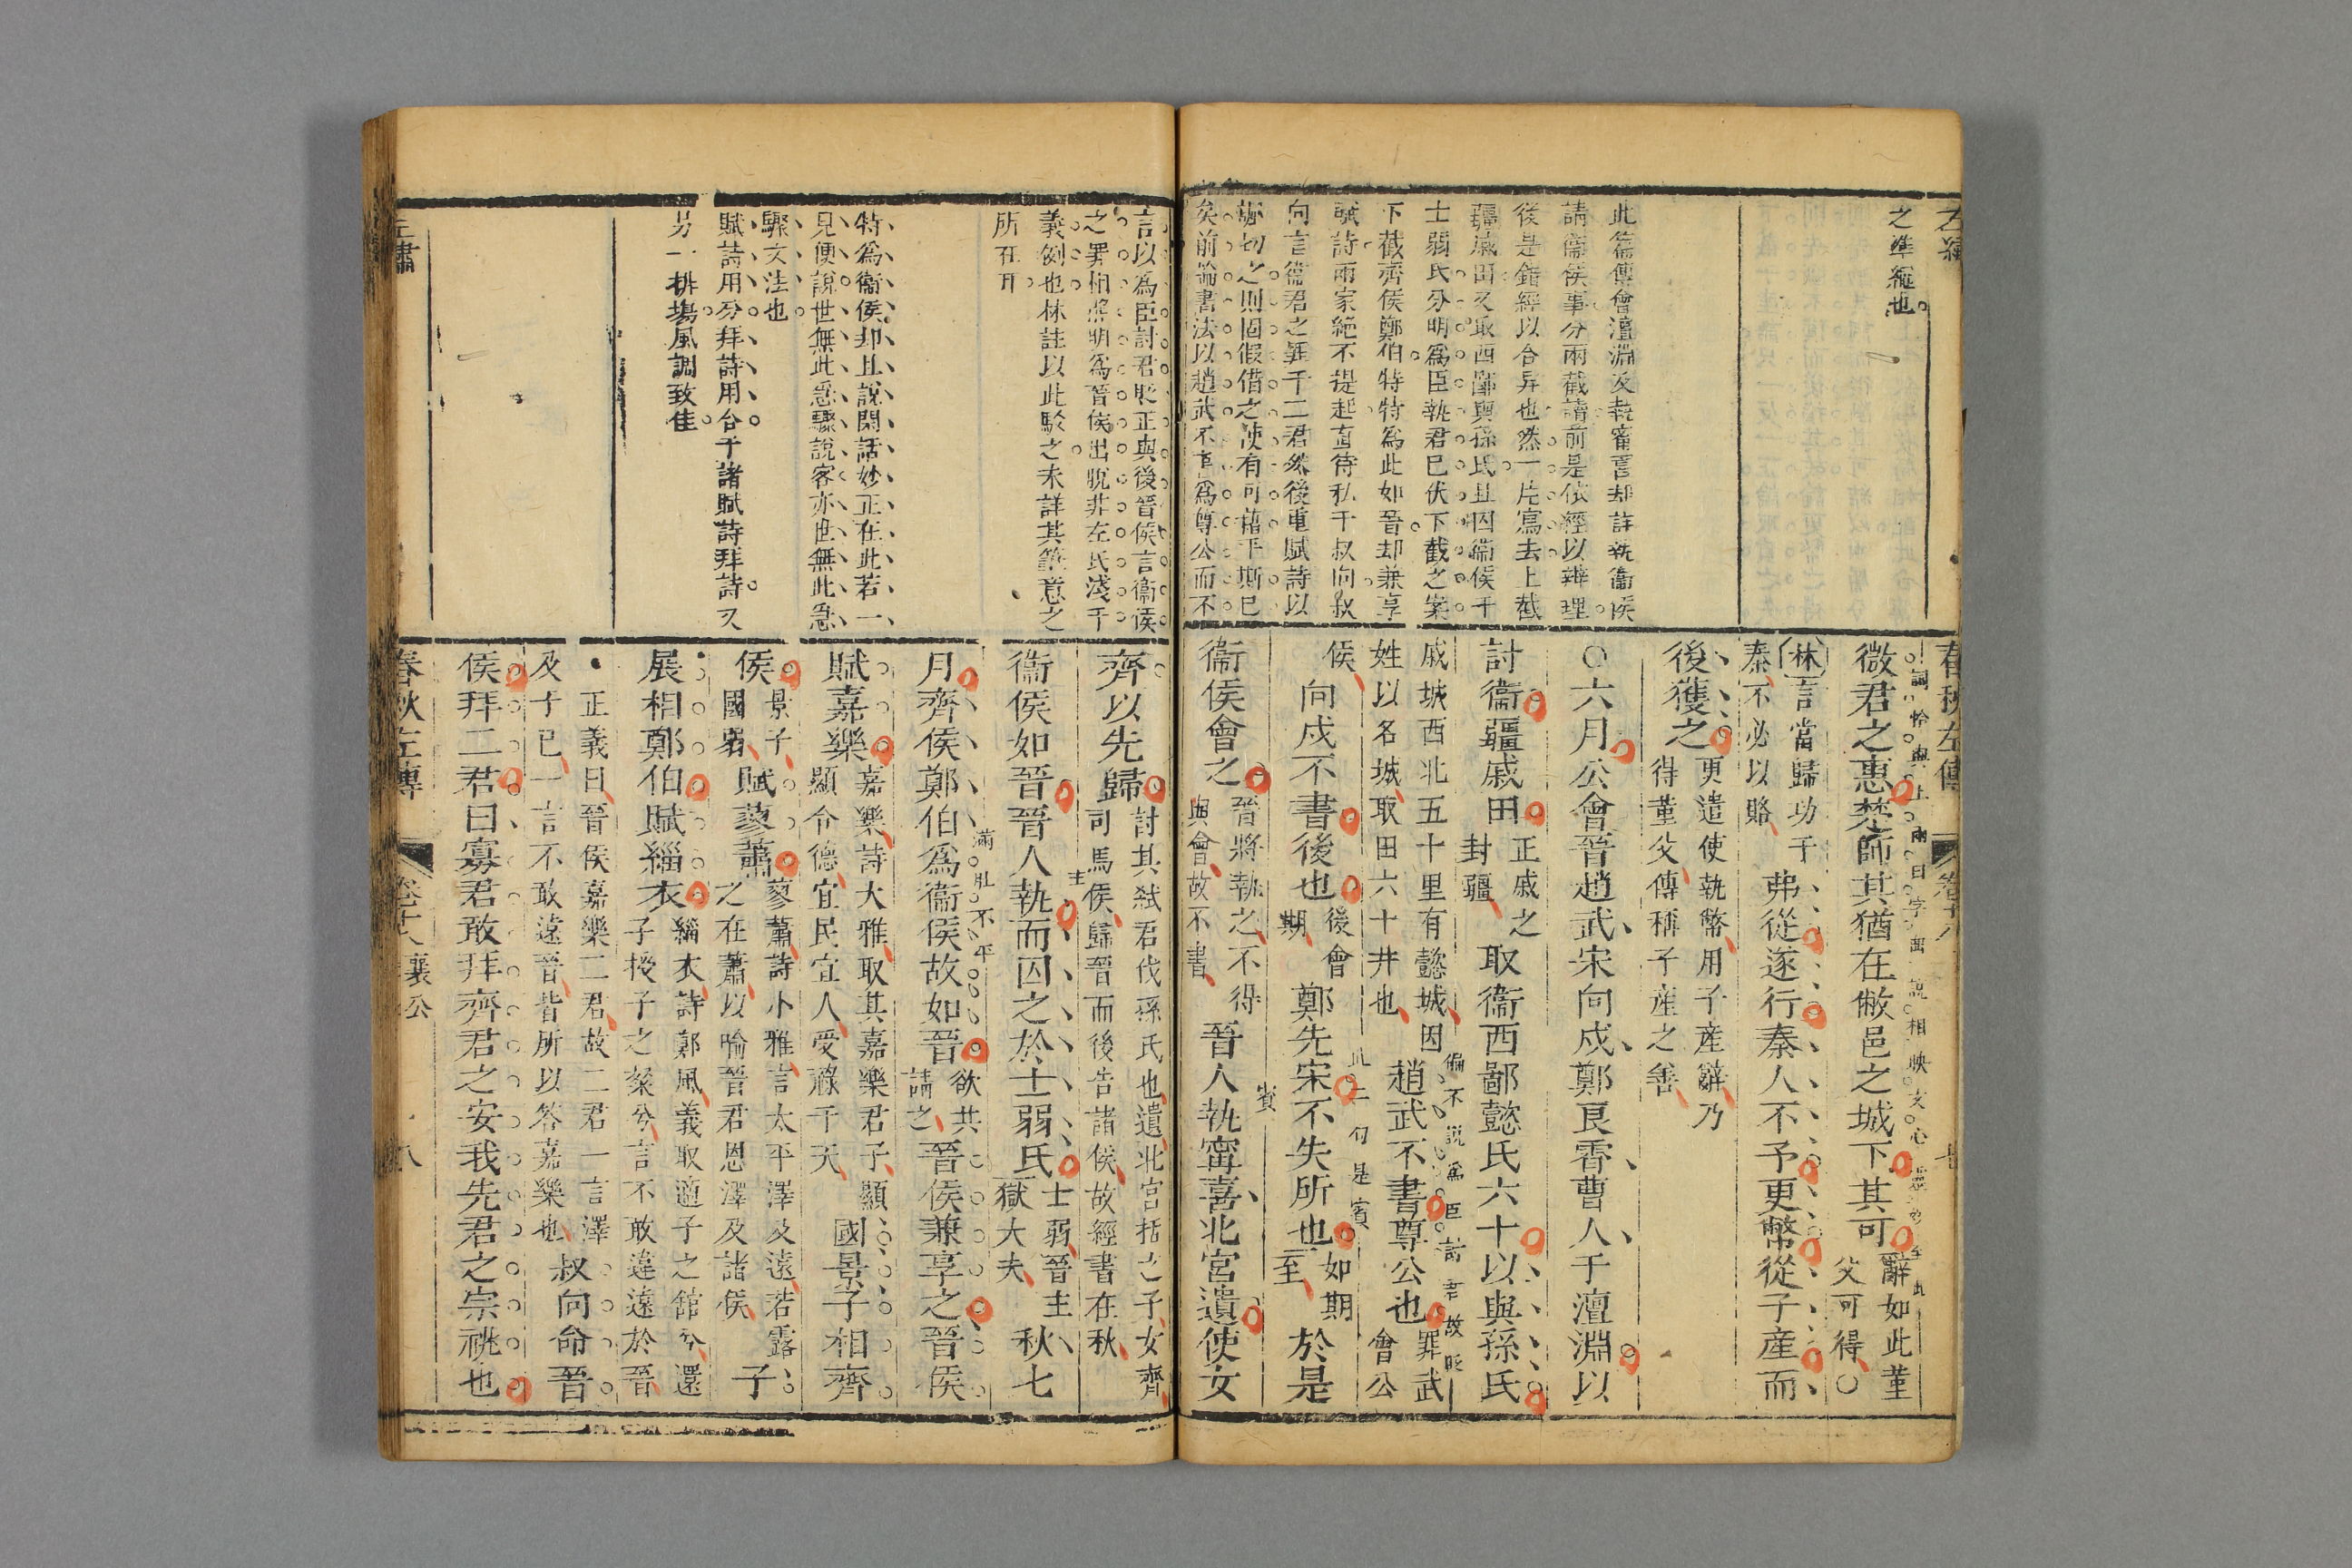 之準繩也
此篇傳會澶淵及執甯喜却註執衞侯
請衞侯事分兩截讀前是依經以辨理
後是錯經以合异也然一片寫去上截
疆戚田又取西鄙與孫氏且囚衞侯于
士弱氏分明爲臣執君已伏下截之案
下截齊侯鄭伯特特爲此如晉却兼享
賦詩兩家絶不提起直待私于叔向叔
向言衞君之罪于二君然後重賦詩以
諷切之則固假借之使有可藉手斯已
矣前論書法以趙武不書爲尊公而不
春秋左傳
微君之惠楚師其猶在敝邑之城下其可
辭如此堇
父可得○
詞恰與上兩曰字面說相映文心
林言當歸功于
秦不必以賂
弗從遂行秦人不予更幣從子產而
後獲之
更遣使執幣用子產辭乃
得堇父傳稱子產之善
○六月公會晉趙武宋向戌鄭良霄曹人于澶淵以
討衞疆戚田
正戚之
封疆
取衞西鄙懿氏六十以與孫氏
戚城西北五十里有懿城因
姓以名城取田六十井也
趙武不書尊公也
罪武
會公
偏不說爲臣討君故貶
侯
向戌不書後也
後會
期
鄭先宋不失所也
如期
至
於是
此二句是賓
衞侯會之
晉將執之不得
與會故不書
晉人執甯喜北宮遺使女
賓
言以爲臣討君貶正與後晉侯言衞侯
之罪相照明爲晉侯出脫非左氏淺于
義例也林註以此駁之未詳其篇意之
所在耳
特爲衞侯却且說閑話妙正在此若一
見便說世無此急驟說客亦世無此急
驟文法也
賦詩用分拜詩用合于諸賦詩拜詩又
另一排塲風調致佳
齊以先歸
討其弒君伐孫氏也遺北宮括之子女齊
司馬侯歸晉而後告諸侯故經書在秋
衞侯如晉晉人執而囚之於士弱氏
士弱晉主
獄大夫
秋七
主
月齊侯鄭伯爲衞侯故如晉
欲共
請之
晉侯兼享之晉侯
滿肚不平
賦嘉樂
嘉樂詩大雅取其嘉樂君子顯
顯令德宜民宜人受祿于天
國景子相齊
侯
景子
國弱
賦蓼蕭
蓼蕭詩小雅言太平澤及遠若露
之在蕭以喻晉君恩澤及諸侯
子
展相鄭伯賦緇衣
緇衣詩鄭風義取適子之館兮還
子授子之粲兮言不敢違遠於晉
正義曰晉侯嘉樂二君故二君一言澤
及于己一言不敢遠晉皆所以答嘉樂也
叔向命晉
侯拜二君曰寡君敢拜齊君之安我先君之宗祧也
春秋左傳
卷十八襄公
八